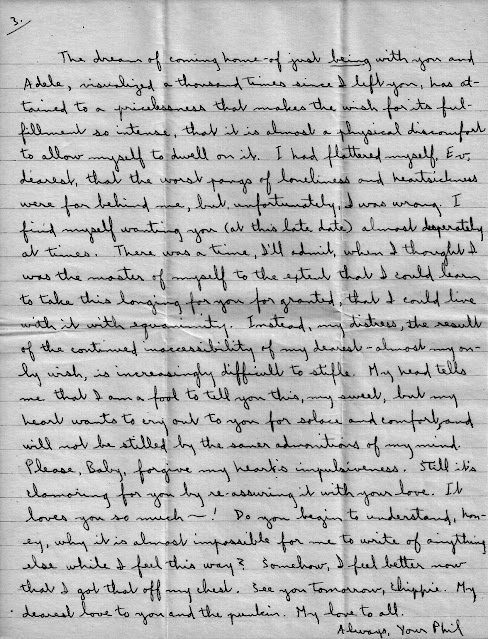 3.
The dream of coming home - of just being with you and
Adele, visualized a thousand times since I left you, has at-
tained to a pricelessness that makes the wish for its ful-
fillment so intense, that it is almost a physical discomfort
to allow myself to dwell on it. I had flattered myself, Ev,
dearest, that the worst pangs of loneliness and heartsickness
were far behind me, but, unfortunately, I was wrong. I
find myself wanting you (at this late date) almost desperately
at times. There was a time, I'll admit, when I thought I
was the master of myself to the extent that I could learn
to take this longing for you for granted, that I could live
with it with equanimity. Instead, my distress, the result
of the continued inaccessibility of my dearest - almost my on-
ly wish, is increasingly difficult to stifle. My head tells
me that I am a fool to tell you this, my sweet, but my
heart wants to cry out to you for solace and comfort, and
will not be stilled by the saner admonitions of my mind.
Please, Baby, forgive my heart's impulsiveness. Still it's
clamoring for you by re-assuring it with your love. It
loves you so much —! Do you begin to understand, hon-
ey, why it is almost impossible for me to write of anything
else while I feel this way? Somehow, I feel better now
that I got that off my chest. See you tomorrow, Chippie. My
dearest love to you and the punkin. My love to all.
Always, Your Phil